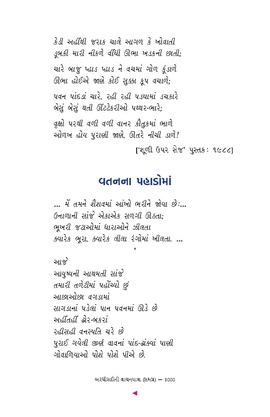 કેડી અહીંથી જરાક ચાલે આગળ કે ઓવાતી
ડૂબકી મારી નીકળે વીંધી ઊભા ખડકની છાતી;
ચારે બાજુ પ્હાડ પ્હાડ ને વચમાં ગોળ કૂંડાળે
ઊભા હોઈએ જાણે કોઈ સુક્કા કૂપ વચાળે;
પવન પાંદડાં ચારે, રહી રહી પડઘામાં ડચકારે
બેસું બેસું થતી ઊંટટેકરીઓ પથ્થર-ભારે;
વૃક્ષો પરથી વળી વળી વાનર કૌતુકમાં ભાળે
ઓળખ હોય પુરાણી જાણે, ઊતરે નીચી ડાળે!
['શૂળી ઉપર સેજ' પુસ્તક: ૧૯૮૮]
વતનના પહાડોમાં
... મેં તમને શૈશવમાં આંખો ભરીને જોયા છે...
ઉનાળાની સાંજે એકાએક સળગી ઊઠતા;
ભૂખરી જટાઓમાં ધારાઓને ઝીલતા
ક્યારેક ભૂરા, ક્યારેક લીલા રંગોમાં ખીલતા. ...
*
આજે
આયુષ્યની આથમતી સાંજે
તમારી તળેટીમાં પહોંચ્યો છું
આછાઓછા વગડામાં
સાગડાનાં પડેલાં પાન પવનમાં ઊડે છે
અહીંતહીં ઢોર-બકરાં
રહીસહી વનસ્પતિ ચરે છે
પુરાઈ ગયેલી જીર્ણ વાવનાં પાંદ-ઝાંખ્યાં પાણી
ગોવાળિયાઓ પોશે પોશે પીએ છે.